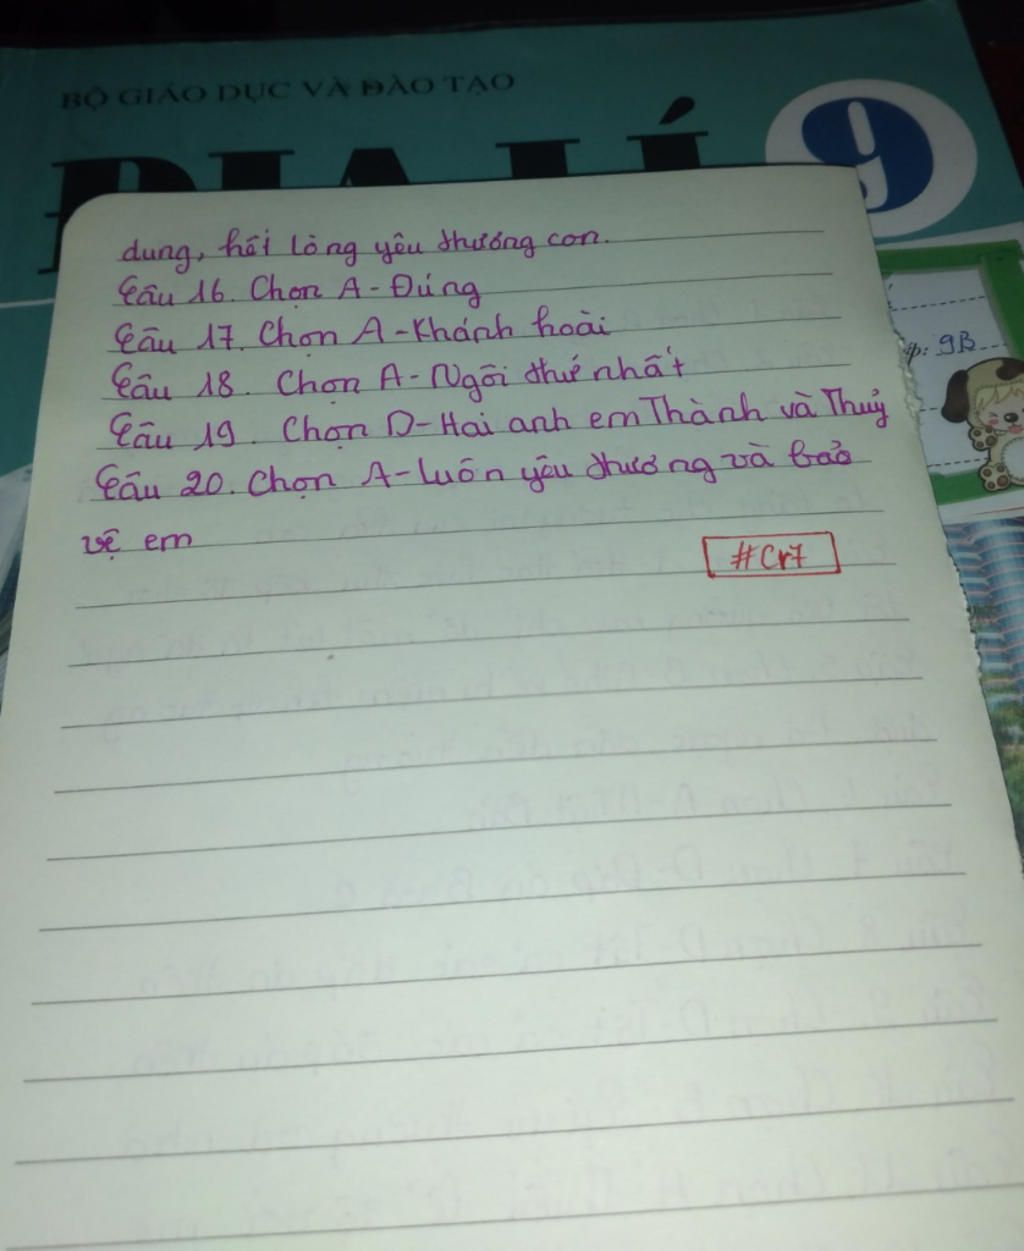 BỘ GIÁO DỤC VÀ ĐÀO TẠO
ĐỊA LÍ 9
dung, hết lòng yêu thương con.
Câu 16. Chọn A - Đúng
Câu 17. Chọn A - Khánh hoài
Câu 18. Chọn A - Ngôi thứ nhất
Câu 19. Chọn D - Hai anh em Thành và Thuỷ
Câu 20. Chọn A - Luôn yêu thương và bảo
vệ em
#Cr7
9B